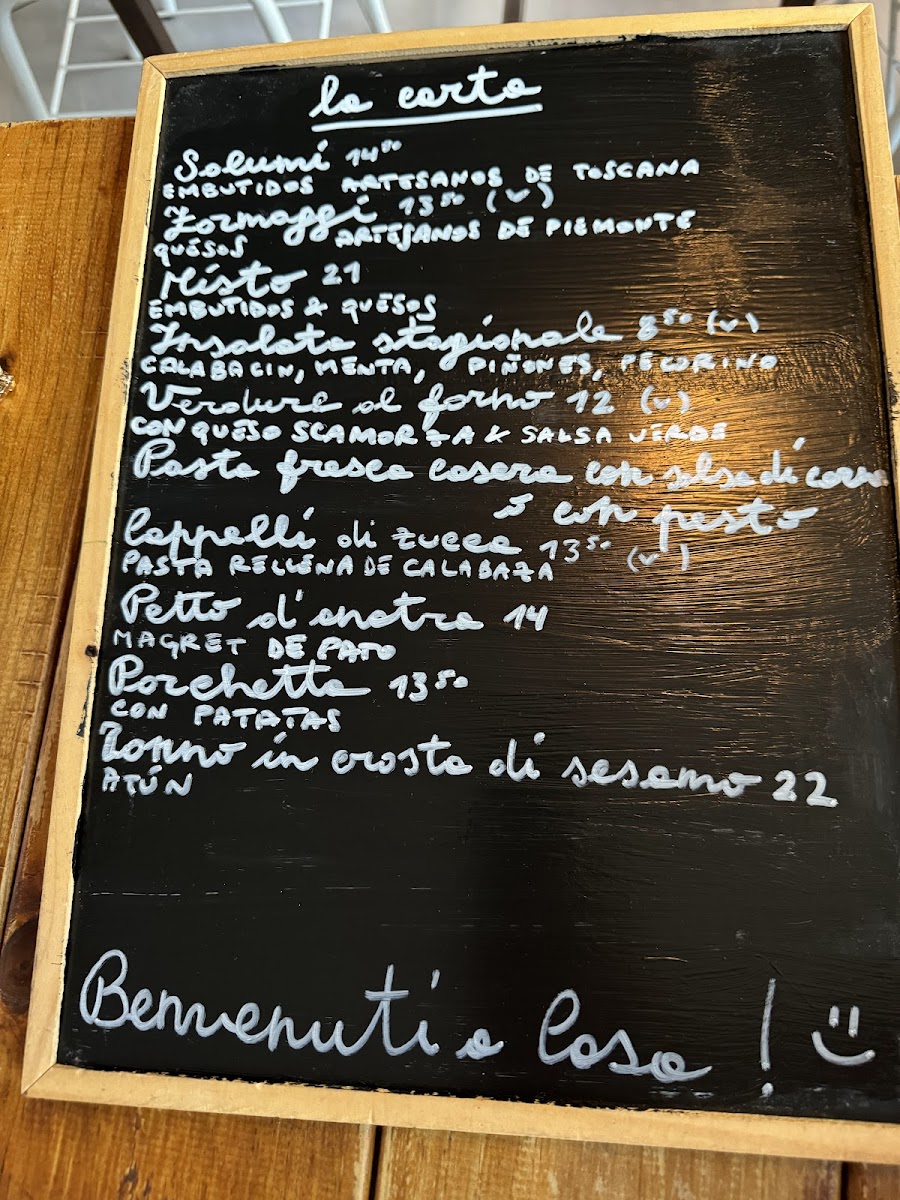 la carta
Salumi 14⁰⁰
EMBUTIDOS ARTESANOS DE TOSCANA
Formaggi 13⁵⁰ (v)
QUESOS ARTESANOS DE PIEMONTE
Misto 21
EMBUTIDOS & QUESOS
Insalata stagionale 8⁵⁰ (v)
CALABACIN, MENTA, PIÑONES, PECORINO
Verdure al forno 12 (v)
CON QUESO SCAMORZA & SALSA VERDE
Pasta fresca casera con salsa di carne
ó con pesto
Cappelli di zucca 13⁵⁰ (v)
PASTA RELLENA DE CALABAZA
Petto d'anatra 14
MAGRET DE PATO
Porchetta 13⁵⁰
CON PATATAS
Tonno in crosta di sesamo 22
ATÚN
Benvenuti a Casa ! :)